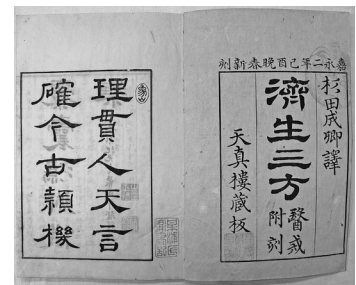 嘉永二年己酉晩春新刻
杉田成卿譯
濟生三方
醫戒
附刻
天真樓藏板
理貫人天言
確今古機